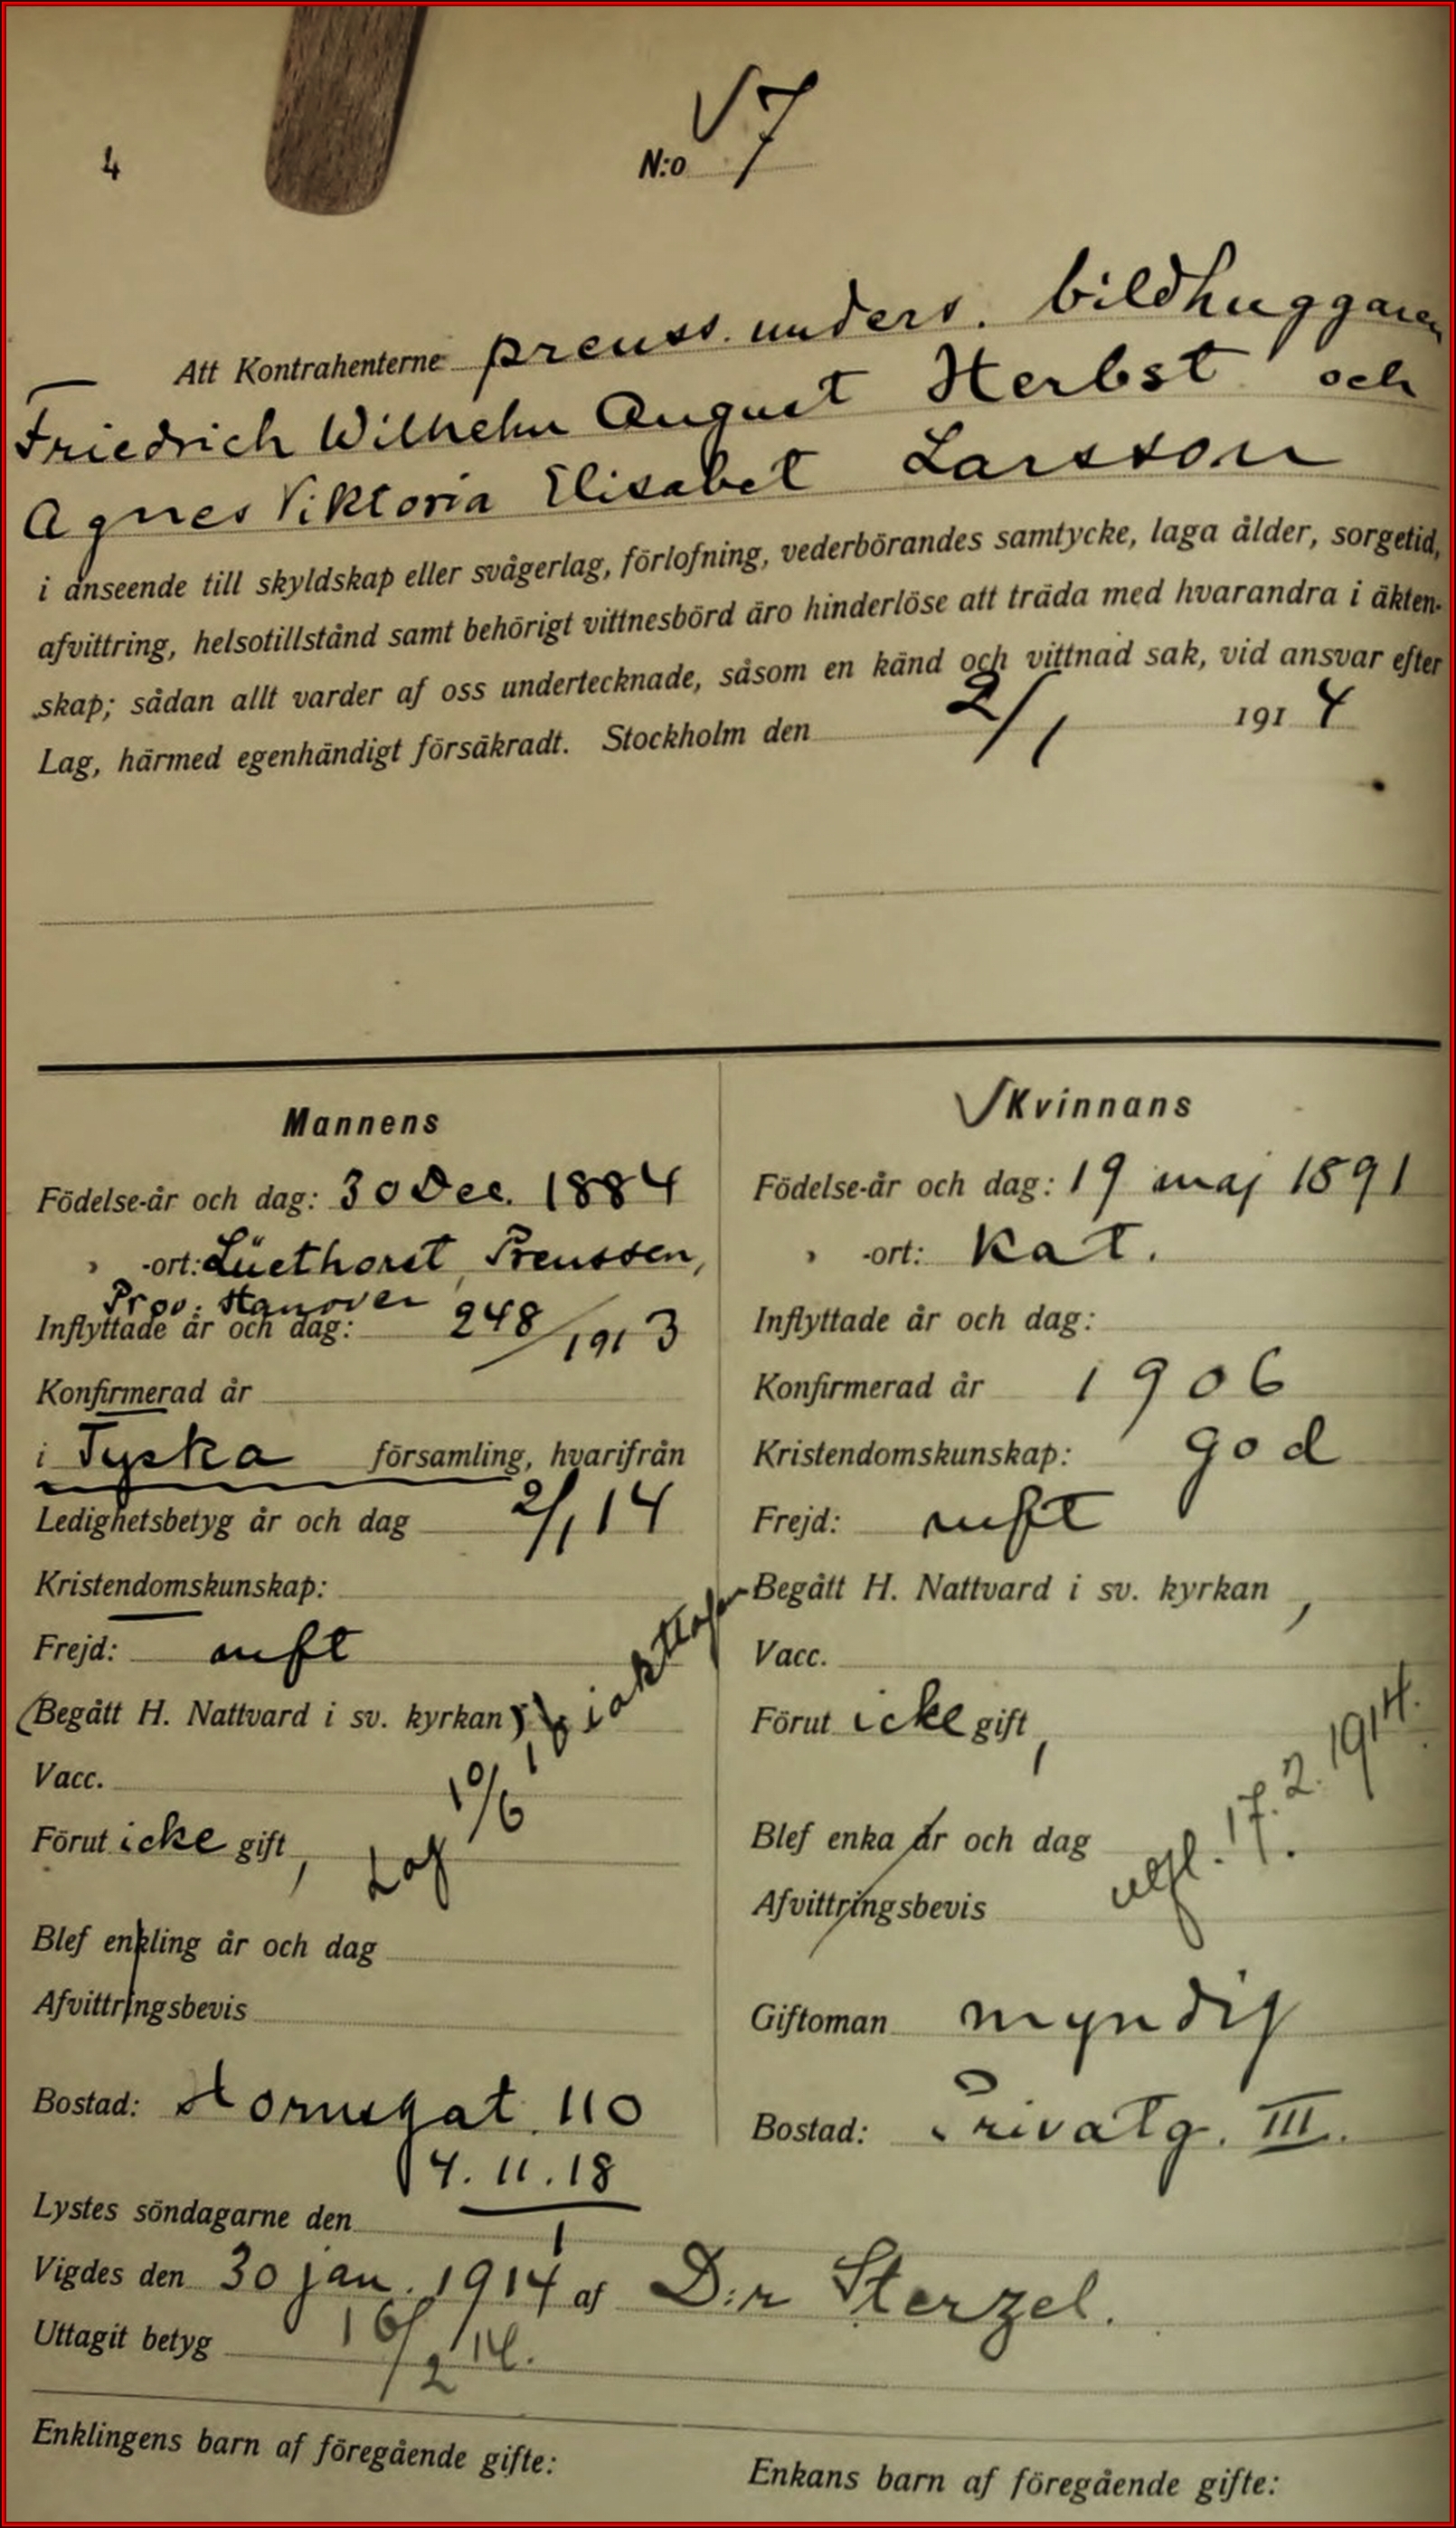 4
N:o 7
Att Kontrahenterne preuss. unders. bildhuggaren
Friedrich Wilhelm August Herbst och
Agnes Viktoria Elisabet Larsson
i anseende till skyldskap eller svågerlag, förlofning, vederbörandes samtycke, laga ålder, sorgetid,
afvittring, helsotillstånd samt behörigt vittnesbörd äro hinderlöse att träda med hvarandra i äkten-
skap; sådan allt varder af oss undertecknade, såsom en känd och vittnad sak, vid ansvar efter
Lag, härmed egenhändigt försäkradt. Stockholm den 2/1 1914
Mannens
Födelse-år och dag: 30 Dec. 1884
» -ort: Lüethorst, Preussen,
Prov. Hanover
Inflyttade år och dag: 248/1913
Konfirmerad år
i Tyska församling, hvarifrån
Ledighetsbetyg år och dag 2/1 14
Kristendomskunskap:
Frejd:
(Begått H. Nattvard i sv. kyrkan)
Vacc.
Förut icke gift,
Lag 10/6 iakttagen
Blef enkling år och dag
Afvittringsbevis
Bostad: Hornsgat. 110
Kvinnans
Födelse-år och dag: 19 maj 1891
» -ort: Kat.
Inflyttade år och dag:
Konfirmerad år 1906
Kristendomskunskap: god
Frejd:
Begått H. Nattvard i sv. kyrkan,
Vacc.
Förut icke gift,
Blef enka år och dag
17.2.1914.
Afvittringsbevis
Giftoman myndig
Bostad: Privatg. III.
Lystes söndagarne den 4.11.18/1
Vigdes den 30 jan. 1914 af D:r Sterzel.
Uttagit betyg 16/2 14.
Enklingens barn af föregående gifte:
Enkans barn af föregående gifte: